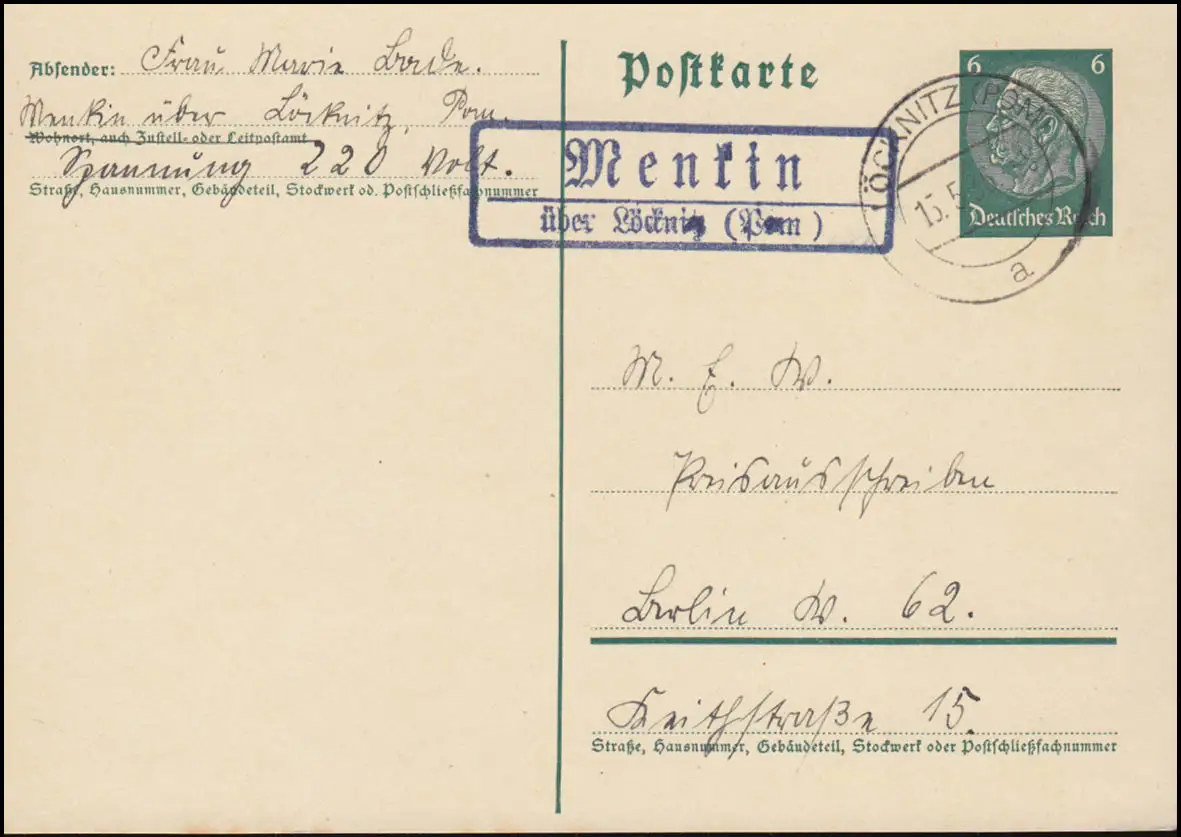 Absender: Frau Marie Bade.
Menkin über Löcknitz, Pom.
Wohnort, auch Zustell- oder Leitpostamt
Spannung 220 Volt.
Straße, Hausnummer, Gebäudeteil, Stockwerk od. Postschließfachnummer
Postkarte
Menkin
über Löcknitz (Pom)
LÖCKNITZ (POM)
15.5
a
6 6
Deutsches Reich
M. E. W.
Preisausschreiben
Berlin W. 62.
Keithstraße 15.
Straße, Hausnummer, Gebäudeteil, Stockwerk oder Postschließfachnummer